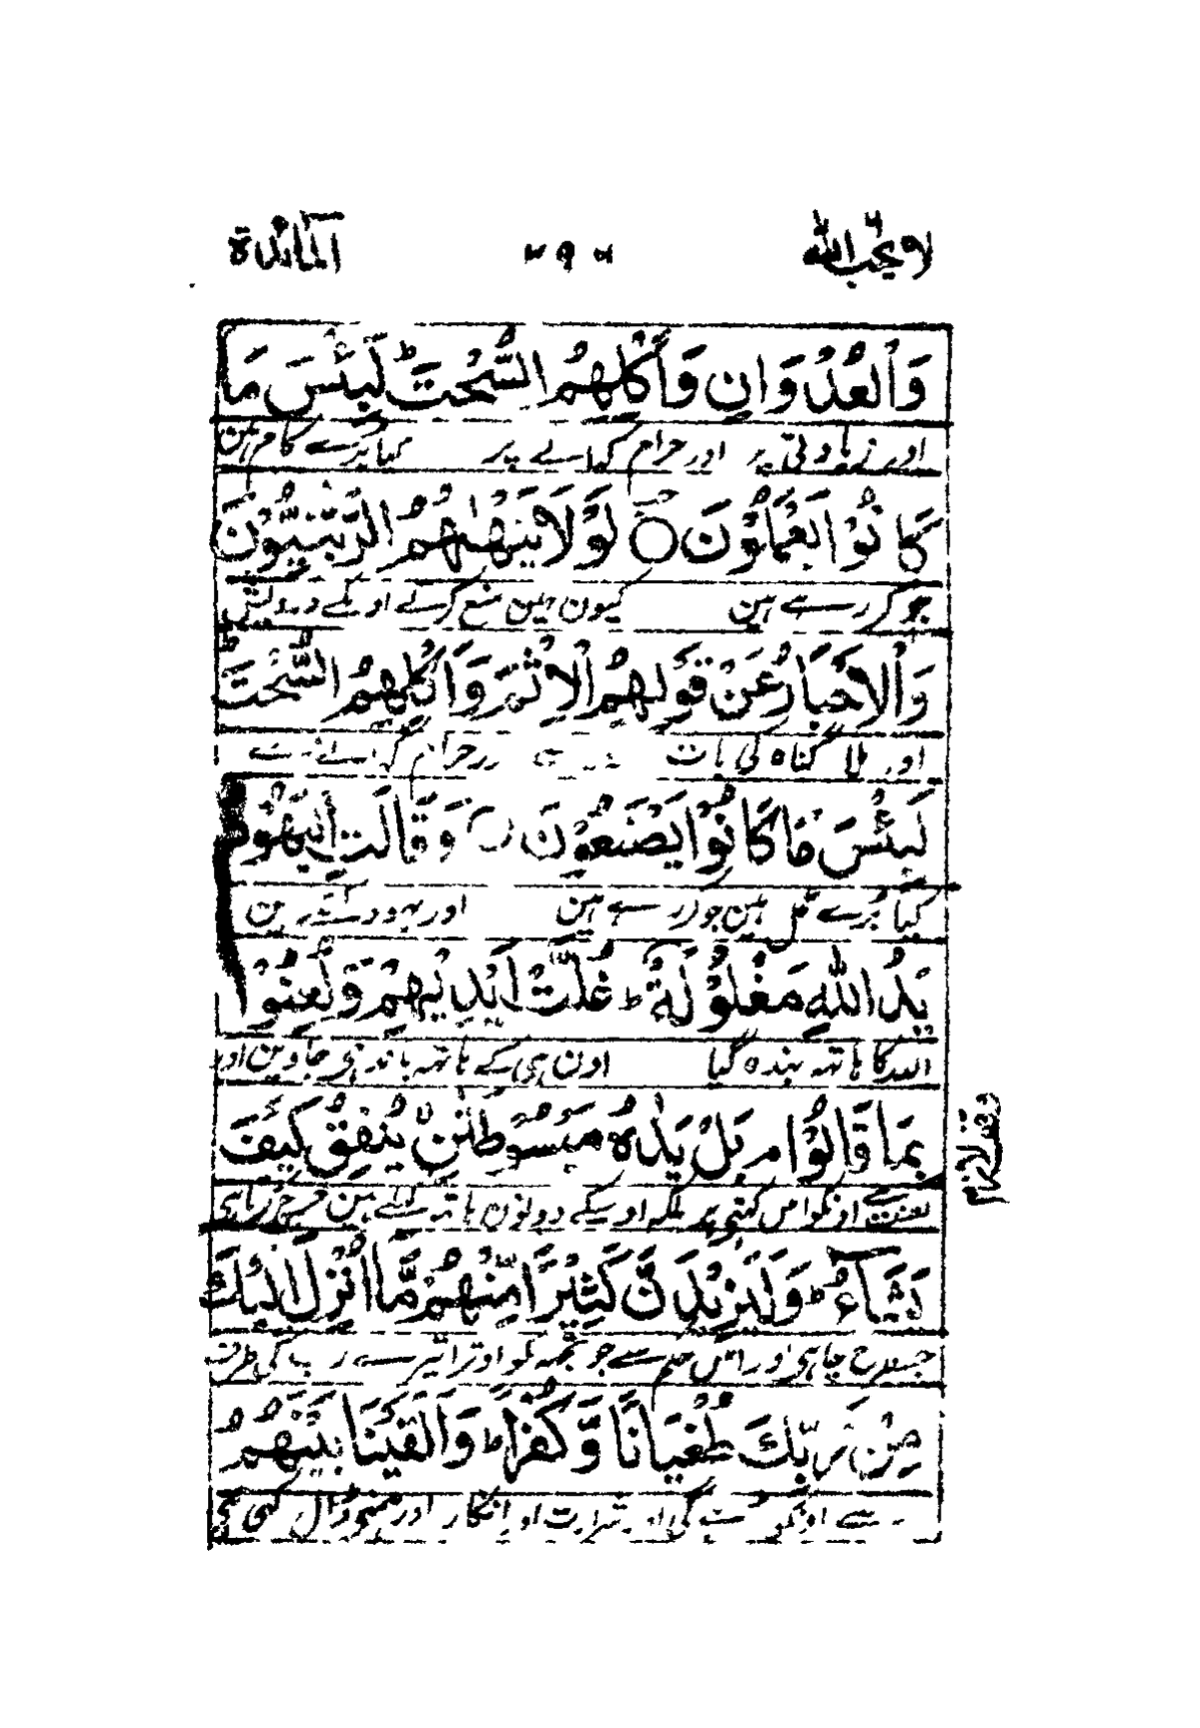 لا یحب الله ٦ المآئدة
وَالْعُدْوَانِ وَاَكْلِهِمُ السُّحْتَ ؕ لَبِئْسَ مَا
اور زیادتی پر اور حرام کہانے پر کیا بُرے کام ہین
كَانُوْا يَعْمَلُوْنَ ○ لَوْلَا يَنْهٰىهُمُ الرَّبّٰنِيُّوْنَ
جو کر رہے ہین کیون نہین منع کرتے اونکے درویش
وَالْاَحْبَارُ عَنْ قَوْلِهِمُ الْاِثْمَ وَاَكْلِهِمُ السُّحْتَ ؕ
اور ملا گناہ کی بات حرام
لَبِئْسَ مَا كَانُوْا يَصْنَعُوْنَ ○ وَقَالَتِ الْيَهُوْدُ
کیا بُرے عمل ہین جو کر رہے ہین اور یہود کہتے ہین
يَدُ اللهِ مَغْلُوْلَةٌ ؕ غُلَّتْ اَيْدِيْهِمْ وَلُعِنُوْا
الله کا ہاتہ بندہ گیا اون ہی کے ہاتہ باندہی جاوین اور
بِمَا قَالُوْا م بَلْ يَدٰهُ مَبْسُوْطَتٰنِ لا يُنْفِقُ كَيْفَ
وقف لازم
لعنت ہے اونکو اس کہنی پر بلکہ اوسکے دونون ہاتہ کہلے ہین خرچ کرتا ہی
يَشَآءُ ؕ وَلَيَزِيْدَنَّ كَثِيْرًا مِّنْهُمْ مَّا اُنْزِلَ اِلَيْكَ
جسطرح چاہی اور اس کلام سے جو تجہہ کو اوترا تیرے رب کی طرف
مِنْ رَّبِّكَ طُغْيَانًا وَّكُفْرًا ؕ وَاَلْقَيْنَا بَيْنَهُمُ
سے اونکو شرارت اور انکار اور ہمنی ڈال رکہی ہی